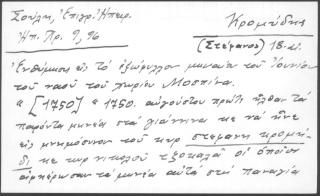 Σούλη, Ἐπιγρ. Ἠπειρ.
Ἠπ. Χρ. 9, 96
Κρομύδης
(Στέφανος) 18 αἰ.
Ἐνθύμησις εἰς τὸ ἐξώφυλλον μηναίου τοῦ Ἰουνίου
τοῦ ναοῦ τοῦ χωρίου Μοσπίνα.
"[1750] "1750. αὐγούστου πρώτη ἦλθαν τὰ
παρόντα μηνέα στὰ γιάννινα κε νὰ ἦνε
εἰς μνημόσυνον τοῦ κυρ στεφανη κρομη-
δι κε κυρ νικολοῦ τζοκαλᾶ οἱ ὁποῖοι
ἀφιέρωσαν τὰ μηνέα αὐτὰ στὴ παναγία